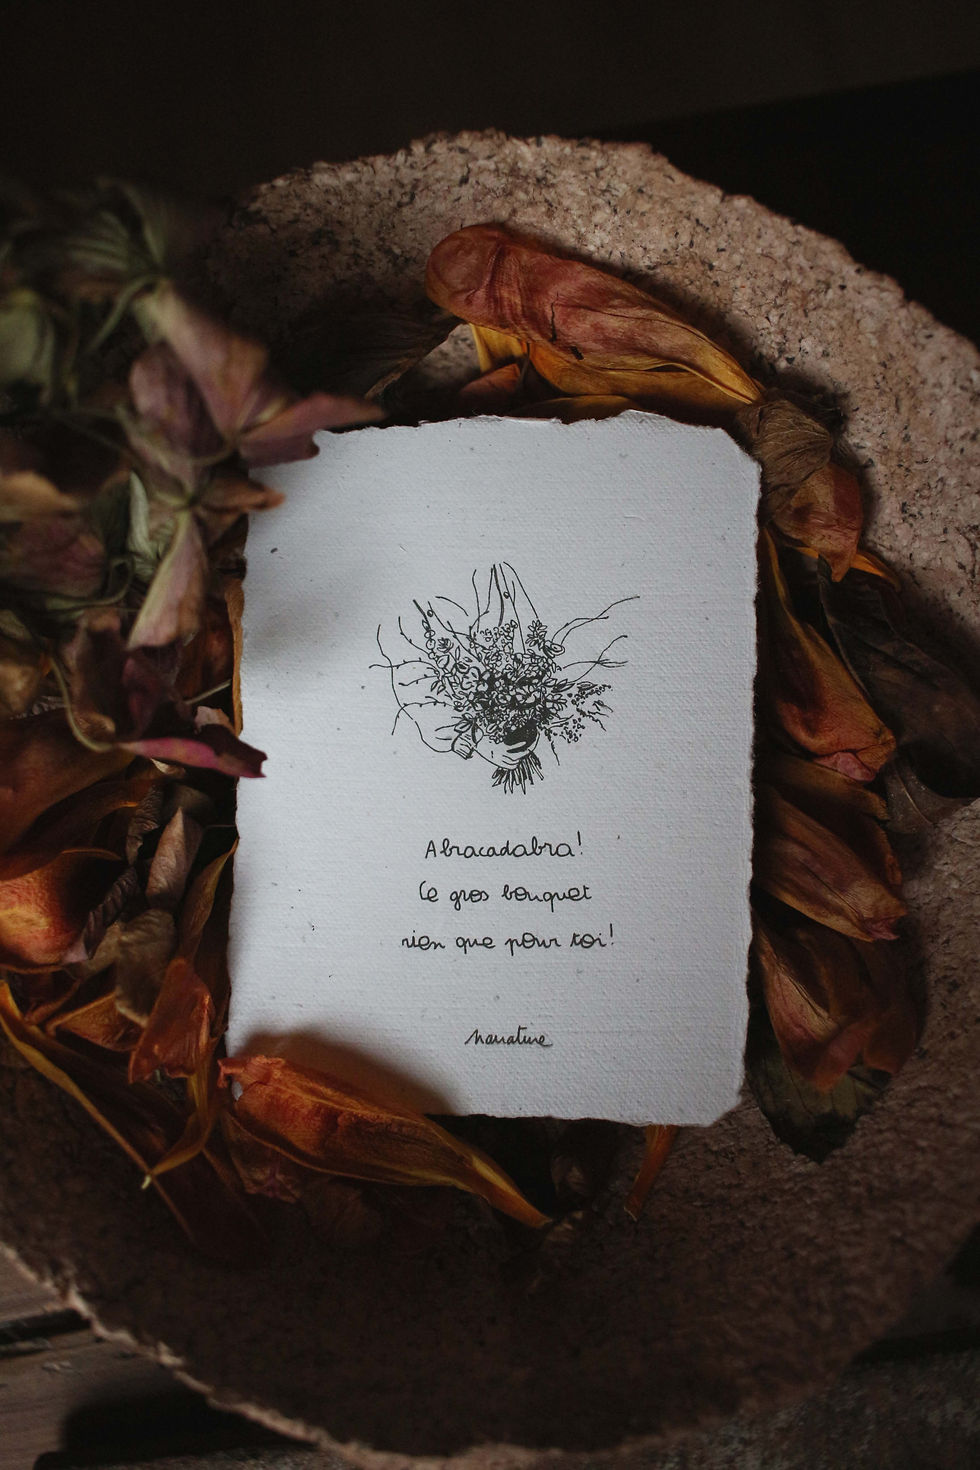 Abracadabra!
Ce gros bouquet
rien que pour toi!